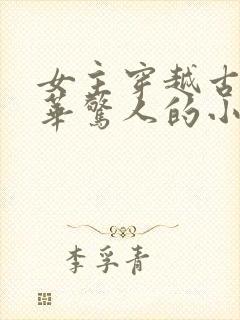 女主穿越古
华惊人的小
李孚青